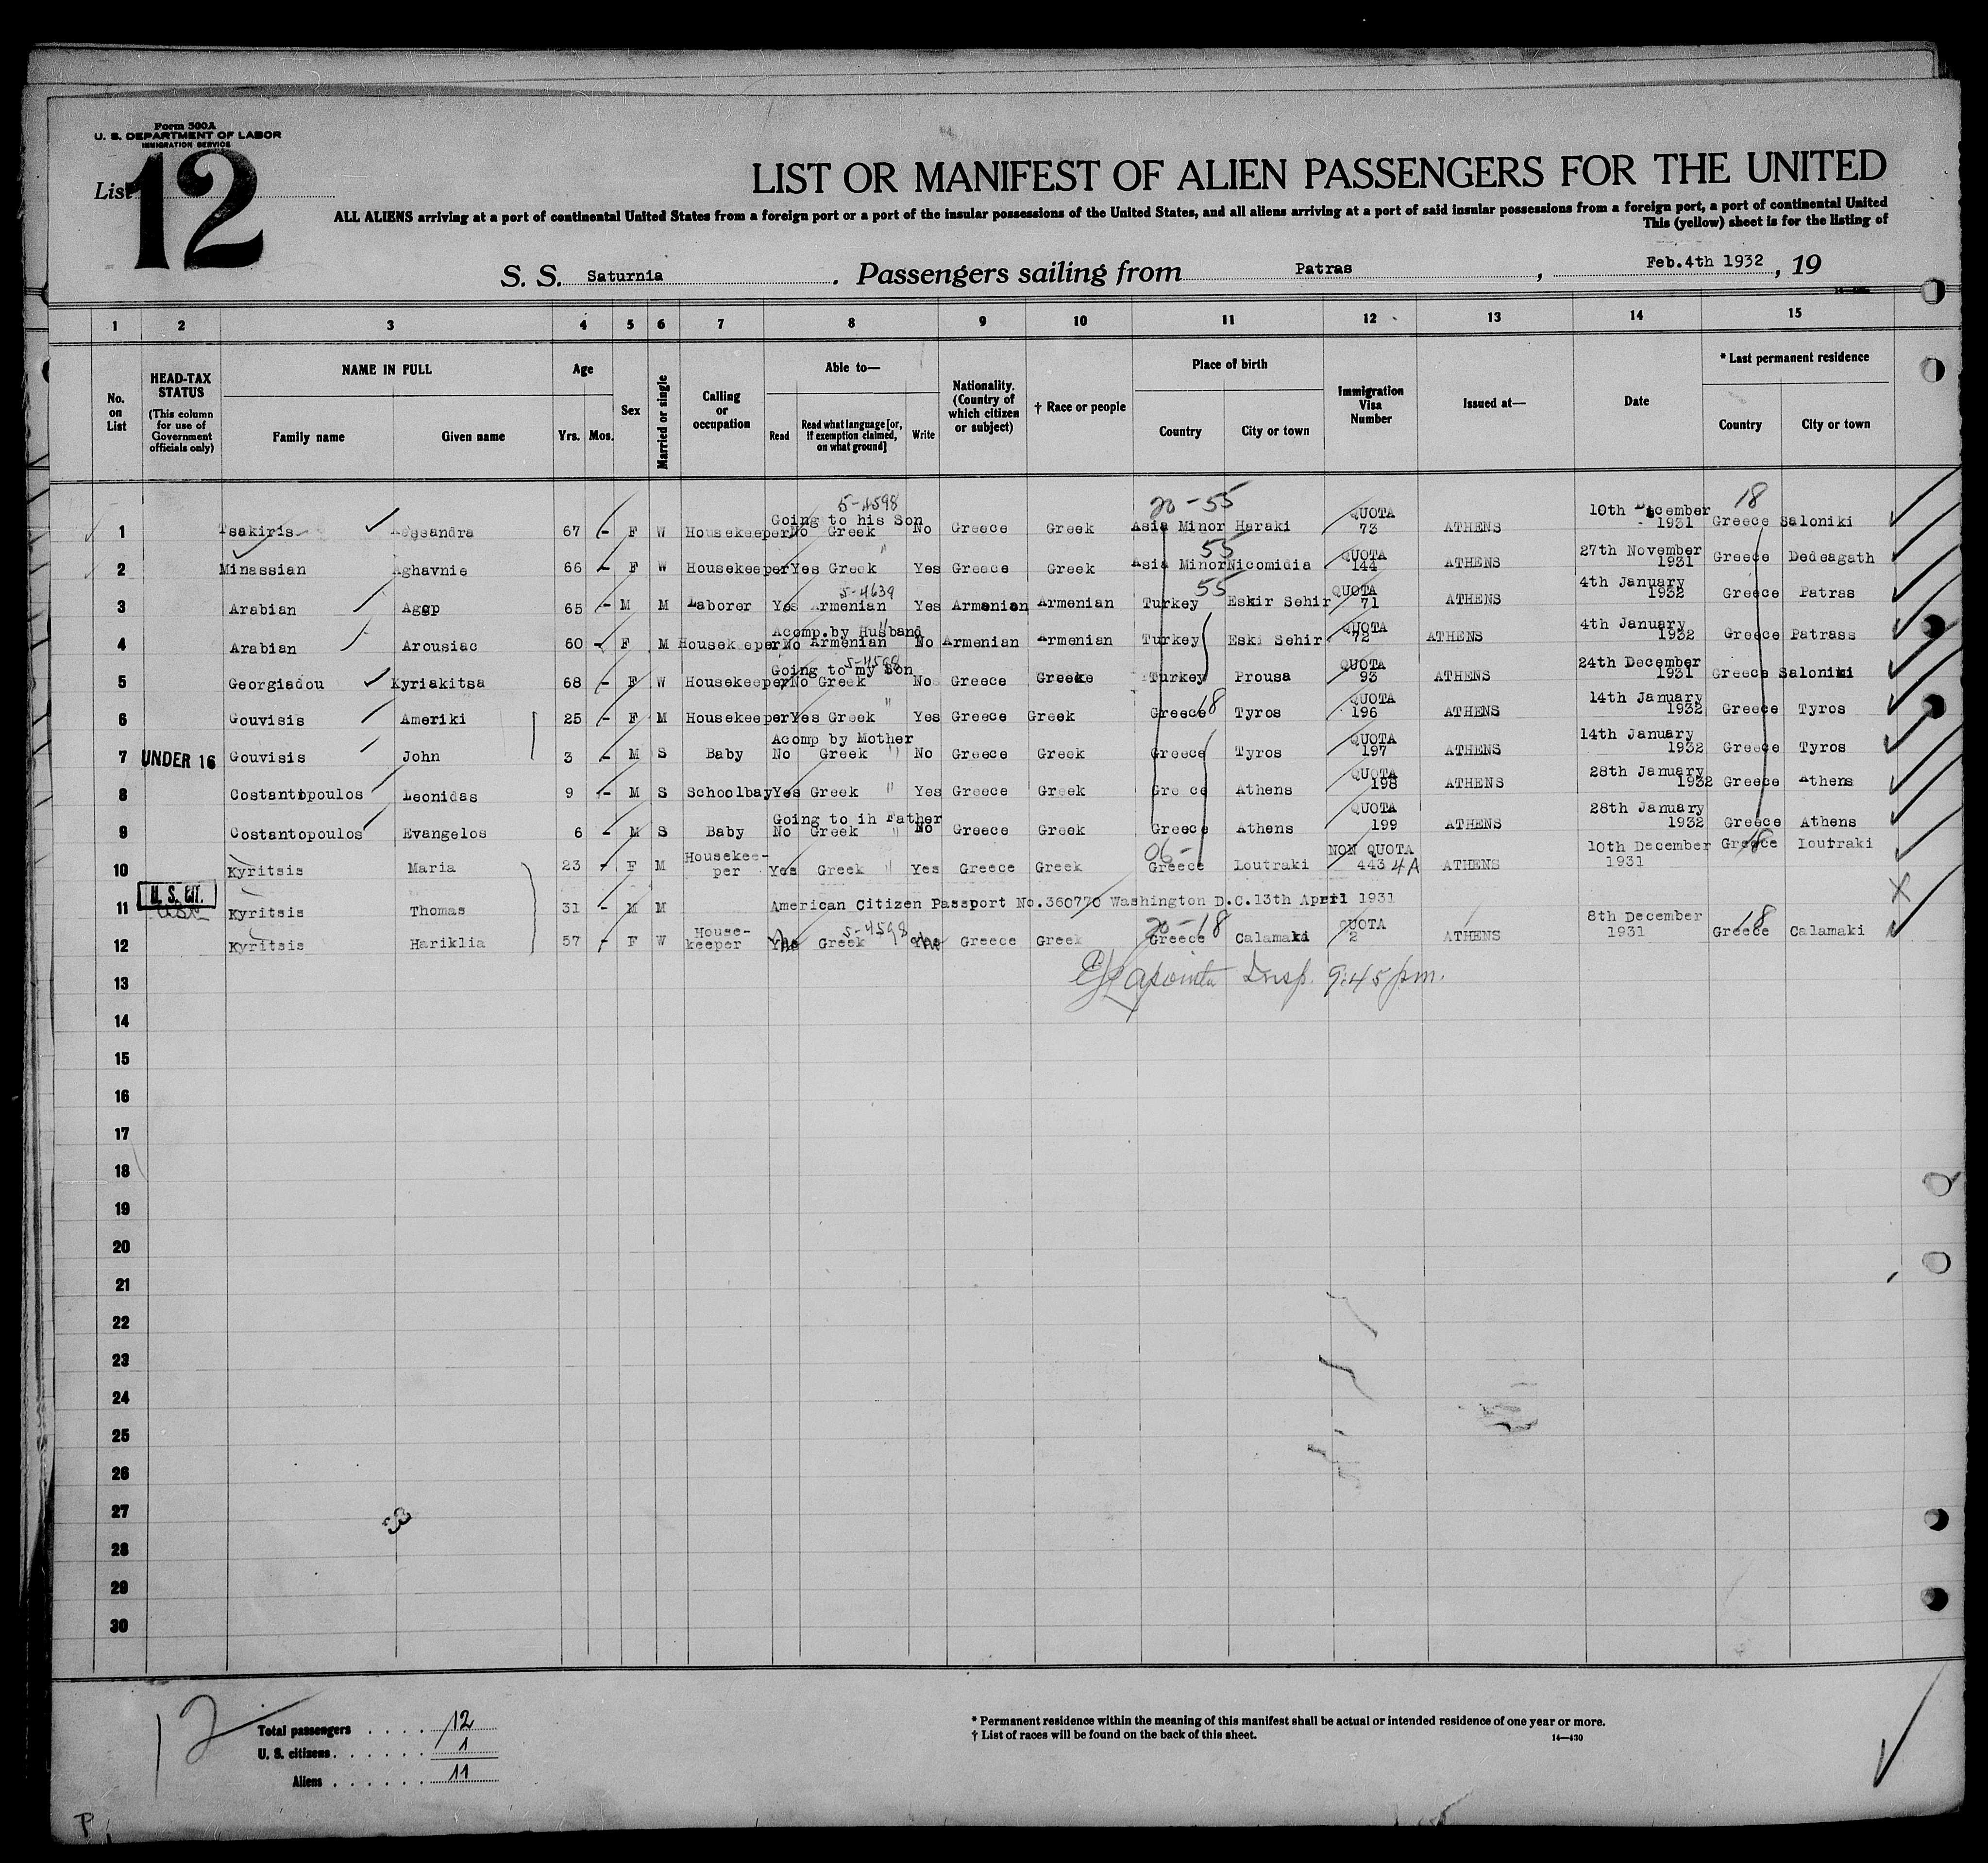 Form 500A
U. S. DEPARTMENT OF LABOR
IMMIGRATION SERVICE
List 12
LIST OR MANIFEST OF ALIEN PASSENGERS FOR THE UNITED
ALL ALIENS arriving at a port of continental United States from a foreign port or a port of the insular possessions of the United States, and all aliens arriving at a port of said insular possessions from a foreign port, a port of continental United
This (yellow) sheet is for the listing of
S. S. Saturnia. Passengers sailing from Patras, Feb.4th 1932, 19
1 2 3 4 5 6 7 8 9 10 11 12 13 14 15
No. on List
HEAD-TAX STATUS (This column for use of Government officials only)
NAME IN FULL
Family name Given name
Age
Yrs. Mos.
Sex
Married or single
Calling or occupation
Able to—
Read Read what language [or, if exemption claimed, on what ground] Write
Nationality. (Country of which citizen or subject)
† Race or people
Place of birth
Country City or town
Immigration Visa Number
Issued at—
Date
* Last permanent residence
Country City or town
5-4598 20-55 18
Going to his Son QUOTA 10th December
1 Tsakiris 67 - F W Housekeeper No Greek No Greece Greek Asia Minor Haraki 73 ATHENS 1931 Greece Saloniki
" 55 QUOTA 27th November
2 Minassian Aghavnie 66 - F W Housekeeper Yes Greek Yes Greece Greek Asia Minor Nicomidia 144 ATHENS 1931 Greece Dedeagath
5-4639 55 QUOTA 4th January
3 Arabian Agop 65 - M M Laborer Yes Armenian Yes Armenian Armenian Turkey Eskir Sehir 71 ATHENS 1932 Greece Patras
Acomp.by Husband " QUOTA 4th January
4 Arabian Arousiac 60 - F M Housek eper No Armenian No Armenian Armenian Turkey Eski Sehir 72 ATHENS 1932 Greece Patrass
Going to my Son 5-4598 QUOTA 24th December
5 Georgiadou Kyriakitsa 68 - F W Housekeeper No Greek No Greece Greeke Turkey Prousa 93 ATHENS 1931 Greece Saloniki
" 18 QUOTA 14th January
6 Gouvisis Ameriki 25 - F M Housekeeper Yes Greek Yes Greece Greek Greece Tyros 196 ATHENS 1932 Greece Tyros
Acomp by Mother QUOTA 14th January
7 UNDER 16 Gouvisis John 3 - M S Baby No Greek " No Greece Greek Greece Tyros 197 ATHENS 1932 Greece Tyros
QUOTA 28th January
8 Costantopoulos Leonidas 9 - M S Schoolbay Yes Greek " Yes Greece Greek Gre ce Athens 198 ATHENS 1932 Greece Athens
Going to ih Father QUOTA 28th January
9 Costantopoulos Evangelos 6 - M S Baby No Greek " No Greece Greek Greece Athens 199 ATHENS 1932 Greece Athens
Housekee- 06- NON QUOTA 10th December Greece 18 Loutraki
10 Kyritsis Maria 23 - F M per Yes Greek " Yes Greece Greek Greece Loutraki 443 4A ATHENS 1931
U. S. CIT.
11 USC Kyritsis Thomas 31 - M M American Citizen Passport No.360770 Washington D.C.13th April 1931
House- 5-4598 20-18 QUOTA 8th December 18
12 Kyritsis Hariklia 57 - F W keeper Greek Greece Greek Greece Calamaki 2 ATHENS 1931 Greece Calamaki
13 Insp. 9:45 pm.
14
15
16
17
18
19
20
21
22
23
24
25
26
27
28
29
30
12
Total passengers . . . . 12
U. S. citizens . . . . . . 1
Aliens . . . . . . 11
* Permanent residence within the meaning of this manifest shall be actual or intended residence of one year or more.
† List of races will be found on the back of this sheet.
14—430
P